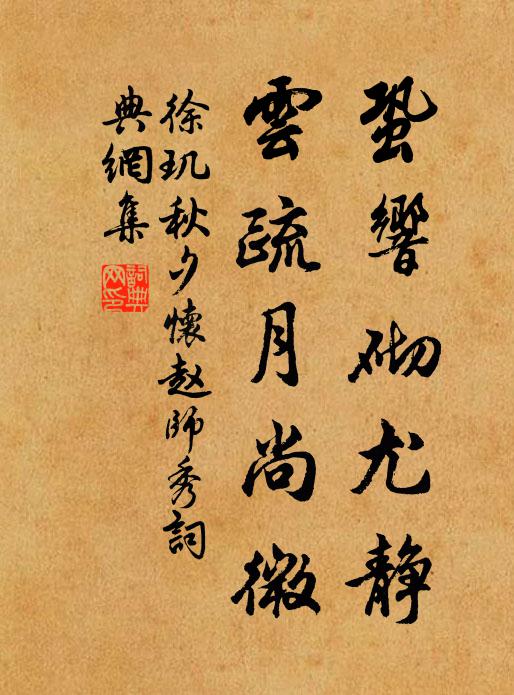 蛩響砌尤静
雲疏月尚微
徐玑秋夕懷赵師秀詞
典網集
詞典
网印